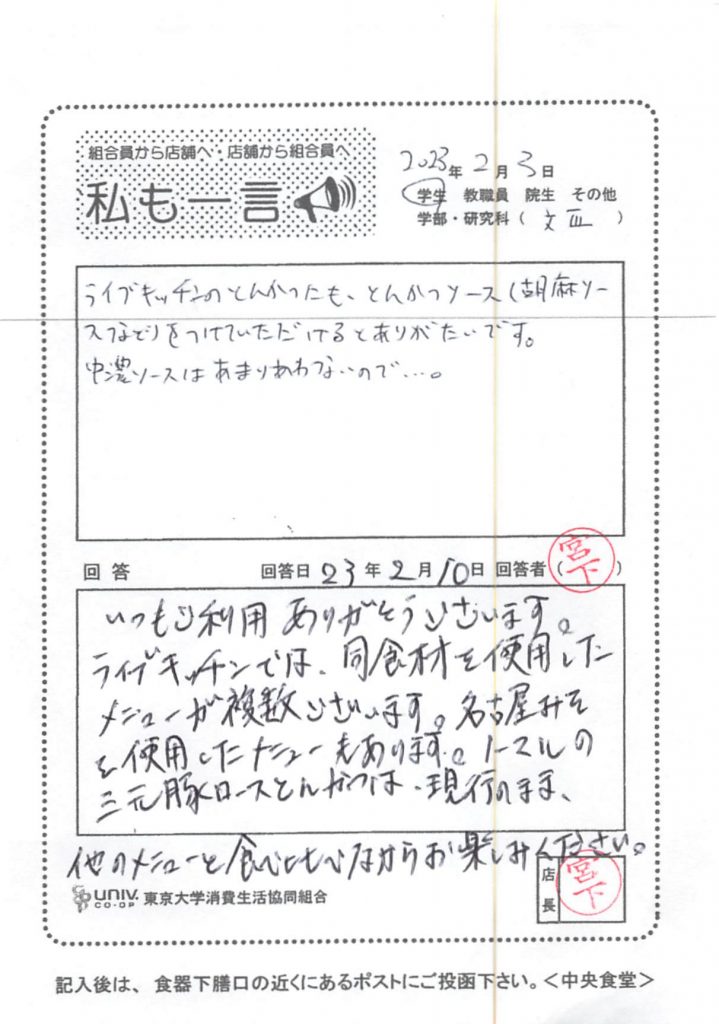 組合員から店舗へ・店舗から組合員へ
私も一言
2023年2月3日
学生 教職員 院生 その他
学部・研究科（文三）
ライブキッチンのとんかつにも、とんかつソース(胡麻ソー
スなど)をつけていただけるとありがたいです。
中濃ソースはあまりあわないので…。
回答 回答日 23年2月10日 回答者（宮下）
いつもご利用ありがとうございます。
ライブキッチンでは、同食材を使用した
メニューが複数ございます。名古屋みそ
を使用したメニューもあります。ノーマルの
三元豚ロースとんかつは、現行のまま、
他のメニューと食べともべながらお楽しみください。
UNIV. CO-OP 東京大学消費生活協同組合
店長 宮下
記入後は、食器下膳口の近くにあるポストにご投函下さい。＜中央食堂＞